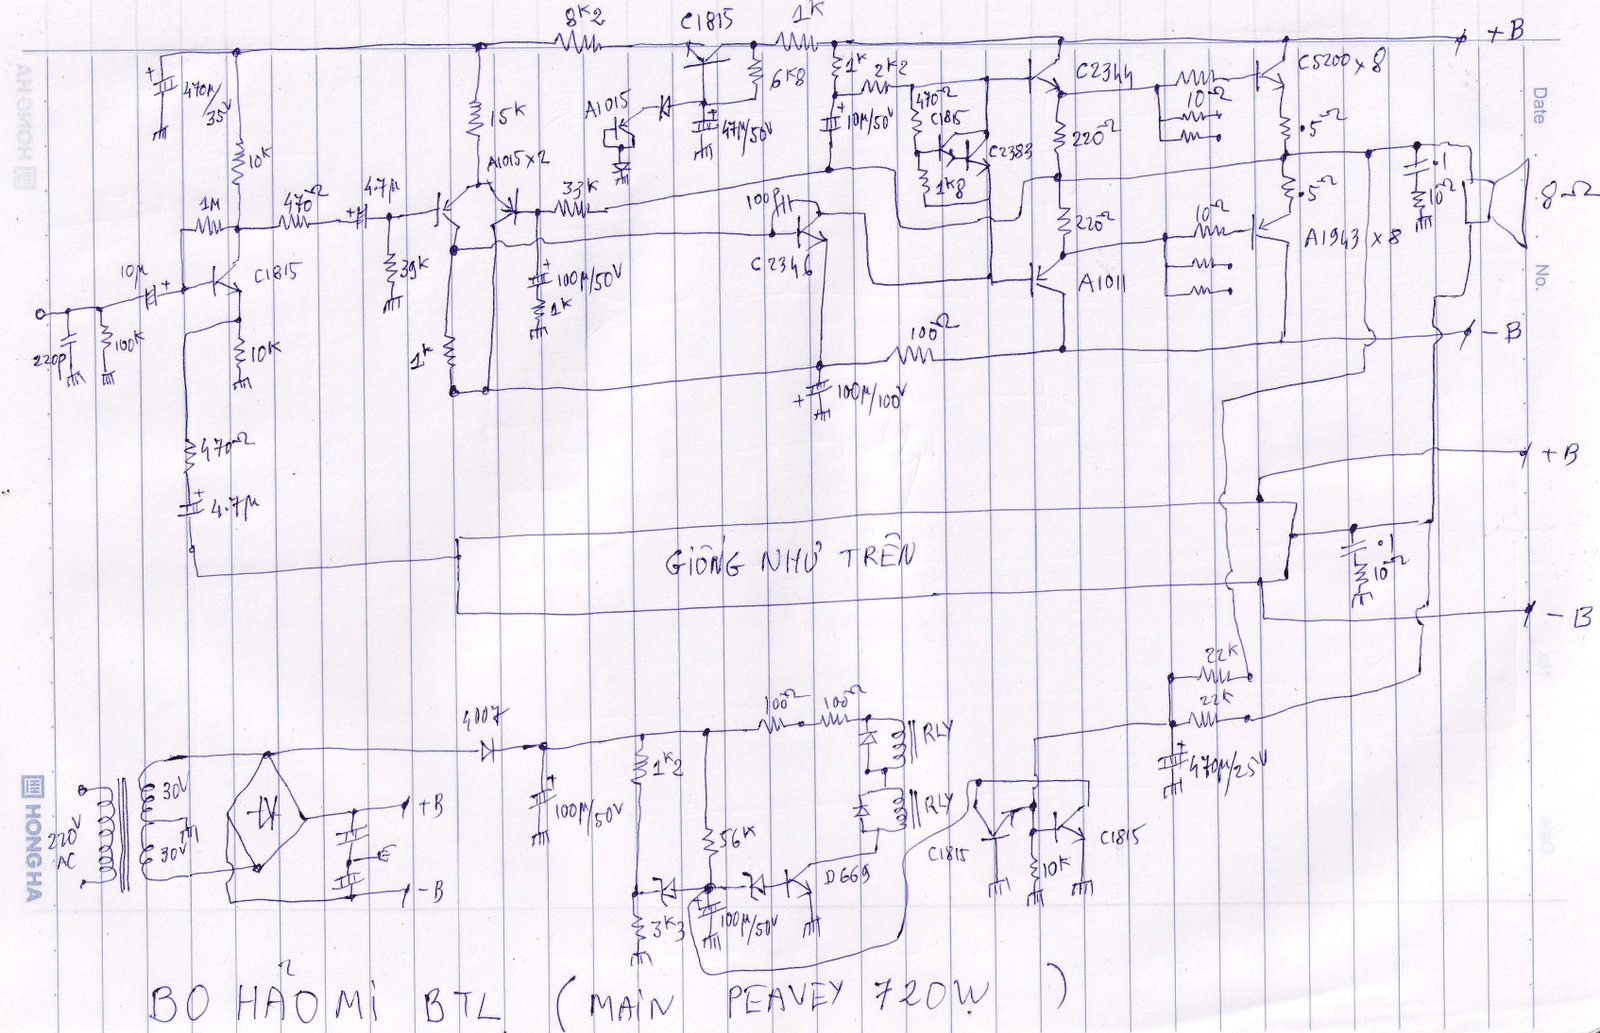 8K2
C1815
1K
+B
470µ/35V
10K
15K
A1015
47µ/50V
6K8
1K
2K2
10µ/50V
470Ω
C1815
C2383
1K8
C2344
220Ω
10Ω
C5200 x 8
.5Ω
.1
10Ω
8Ω
Date
No.
1M
470Ω
4.7µ
A1015 x 2
33K
C2346
220Ω
10Ω
.5Ω
A1943 x 8
A1011
10µ
C1815
39K
100µ/50V
1K
220p
100K
10K
1K
100Ω
100µ/100V
-B
470Ω
4.7µ
+B
GIỐNG NHƯ TRÊN
.1
10Ω
-B
22K
22K
470µ/25V
4007
100Ω
100Ω
RLY
RLY
220V
AC
30V
30V
+B
-B
100µ/50V
1K2
56K
3K3
100µ/50V
D669
C1815
10K
C1815
HONG HA
BO HẢO MI BTL (MAIN PEAVEY 720W)